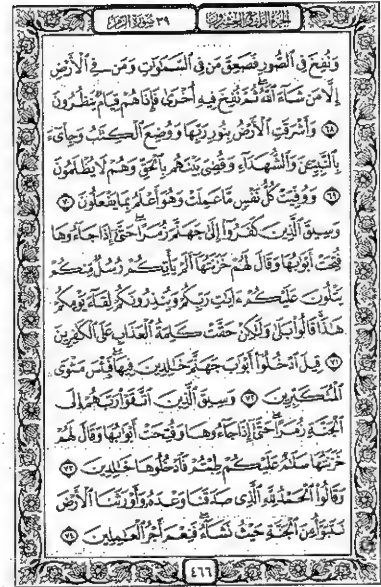 الجزء الرابع والعشرون ٣٩ سورة الزمر
وَنُفِخَ فِي ٱلصُّورِ فَصَعِقَ مَن فِي ٱلسَّمَٰوَٰتِ وَمَن فِي ٱلْأَرْضِ
إِلَّا مَن شَآءَ ٱللَّهُ ثُمَّ نُفِخَ فِيهِ أُخْرَىٰ فَإِذَا هُمْ قِيَامٌ يَنظُرُونَ
٦٨ وَأَشْرَقَتِ ٱلْأَرْضُ بِنُورِ رَبِّهَا وَوُضِعَ ٱلْكِتَٰبُ وَجِا۟ىٓءَ
بِٱلنَّبِيِّـۧنَ وَٱلشُّهَدَآءِ وَقُضِىَ بَيْنَهُم بِٱلْحَقِّ وَهُمْ لَا يُظْلَمُونَ
٦٩ وَوُفِّيَتْ كُلُّ نَفْسٍ مَّا عَمِلَتْ وَهُوَ أَعْلَمُ بِمَا يَفْعَلُونَ ٧٠
وَسِيقَ ٱلَّذِينَ كَفَرُوٓا۟ إِلَىٰ جَهَنَّمَ زُمَرًا حَتَّىٰٓ إِذَا جَآءُوهَا
فُتِحَتْ أَبْوَٰبُهَا وَقَالَ لَهُمْ خَزَنَتُهَآ أَلَمْ يَأْتِكُمْ رُسُلٌ مِّنكُمْ
يَتْلُونَ عَلَيْكُمْ ءَايَٰتِ رَبِّكُمْ وَيُنذِرُونَكُمْ لِقَآءَ يَوْمِكُمْ
هَٰذَا قَالُوا۟ بَلَىٰ وَلَٰكِنْ حَقَّتْ كَلِمَةُ ٱلْعَذَابِ عَلَى ٱلْكَٰفِرِينَ
٧١ قِيلَ ٱدْخُلُوٓا۟ أَبْوَٰبَ جَهَنَّمَ خَٰلِدِينَ فِيهَا فَبِئْسَ مَثْوَى
ٱلْمُتَكَبِّرِينَ ٧٢ وَسِيقَ ٱلَّذِينَ ٱتَّقَوْا۟ رَبَّهُمْ إِلَى
ٱلْجَنَّةِ زُمَرًا حَتَّىٰٓ إِذَا جَآءُوهَا وَفُتِحَتْ أَبْوَٰبُهَا وَقَالَ لَهُمْ
خَزَنَتُهَا سَلَٰمٌ عَلَيْكُمْ طِبْتُمْ فَٱدْخُلُوهَا خَٰلِدِينَ ٧٣
وَقَالُوا۟ ٱلْحَمْدُ لِلَّهِ ٱلَّذِى صَدَقَنَا وَعْدَهُۥ وَأَوْرَثَنَا ٱلْأَرْضَ
نَتَبَوَّأُ مِنَ ٱلْجَنَّةِ حَيْثُ نَشَآءُ فَنِعْمَ أَجْرُ ٱلْعَٰمِلِينَ ٧٤
٤٦٦